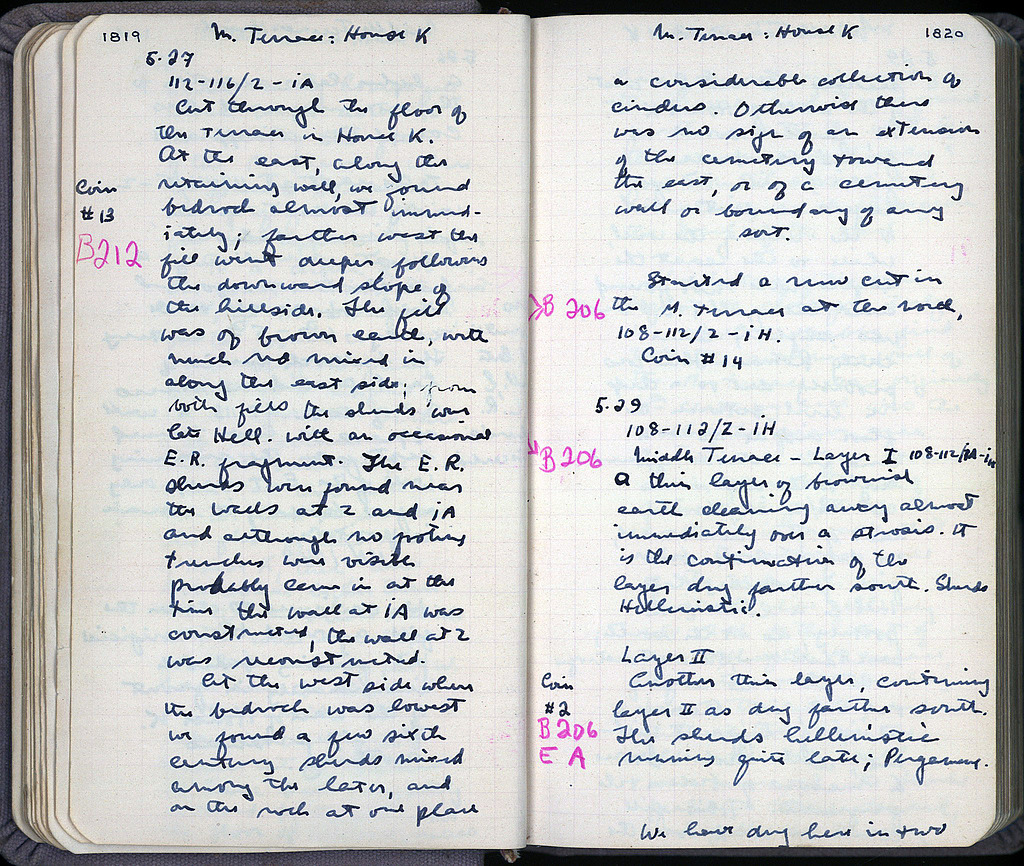 1819
M. Terrace: House K
5.27
112-116/2-iA
Cut through the floor of
the terrace in House K.
At the east, along the
retaining wall, we found
Coin
#13
bedrock almost immed-
iately; farther west the
B212
fill went deeper, following
the downward slope of
the hillside. The fill
was of brown earth, with
much red mixed in
along the east side; from
both fills the sherds were
late Hell. with an occasional
E.R. fragment. The E.R.
sherds were found near
the walls at 2 and iA
and although no
trenches were visible
probably came in at the
time the wall at iA was
constructed, the wall at 2
was reconstructed.
At the west side where
the bedrock was lowest
we found a few sixth
century sherds mixed
among the later, and
on the rock at one place
M. Terrace: House K
1820
a considerable collection of
cinders. Otherwise there
was no sign of an extension
of the cemetery toward
the east, or of a cemetery
wall or boundary of any
sort.
Started a new cut in
B 206
the M. Terrace at the road,
108-112/2-iH.
Coin #14
5.29
108-112/2-iH
B206
Middle Terrace - Layer I 108-112/
A thin layer of brownish
earth clearing away almost
immediately over a strosis. It
is the continuation of the
layer dug farther south. Sherds
Hellenistic.
Layer II
Coin
#2
Another thin layer, continuing
layer II as dug farther south.
B206
E A
The sherds hellenistic
running quite late; Pergamene.
We have dug here in two